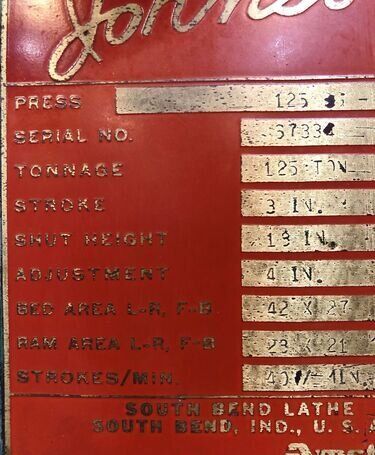 Johnso
PRESS 125
SERIAL NO.
TONNAGE 125 TON
STROKE 3 IN.
SHUT HEIGHT IN.
ADJUSTMENT 4 IN.
BED AREA L-R, F-B 42 X 27
RAM AREA L-R, F-B X 21
STROKES/MIN.
SOUTH BEND LATHE
SOUTH BEND, IND., U. S. A